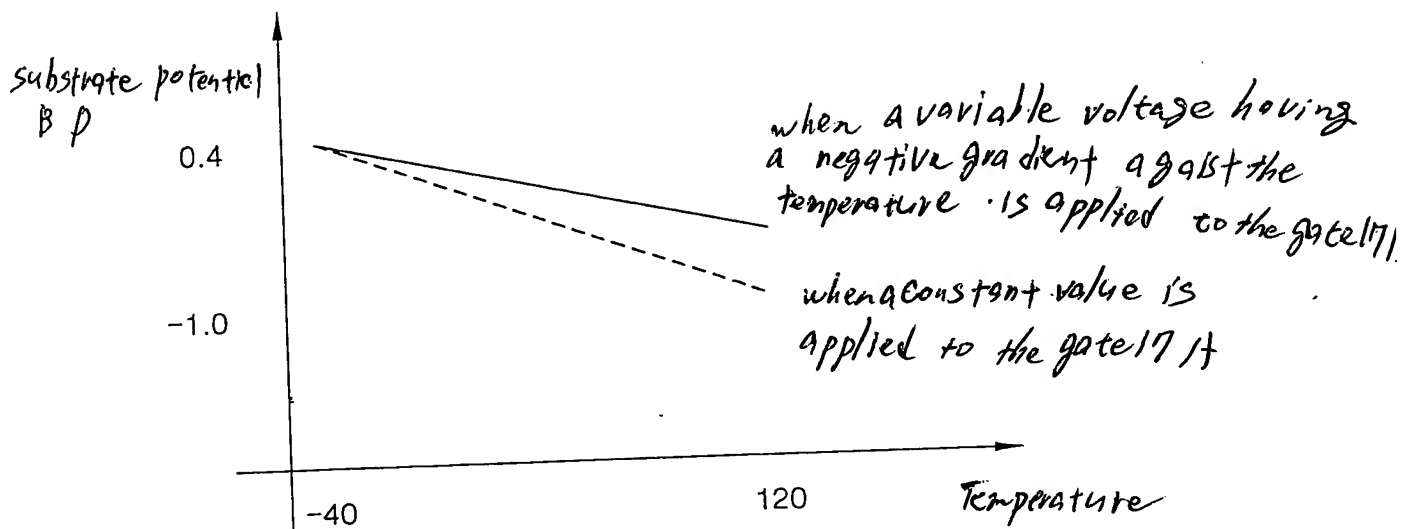 substrate potential
BP
0.4
-1.0
when a variable voltage having
a negative gradient agaist the
temperature is applied to the gate 171.
when a constant value is
applied to the gate 171
-40
120
Temperature